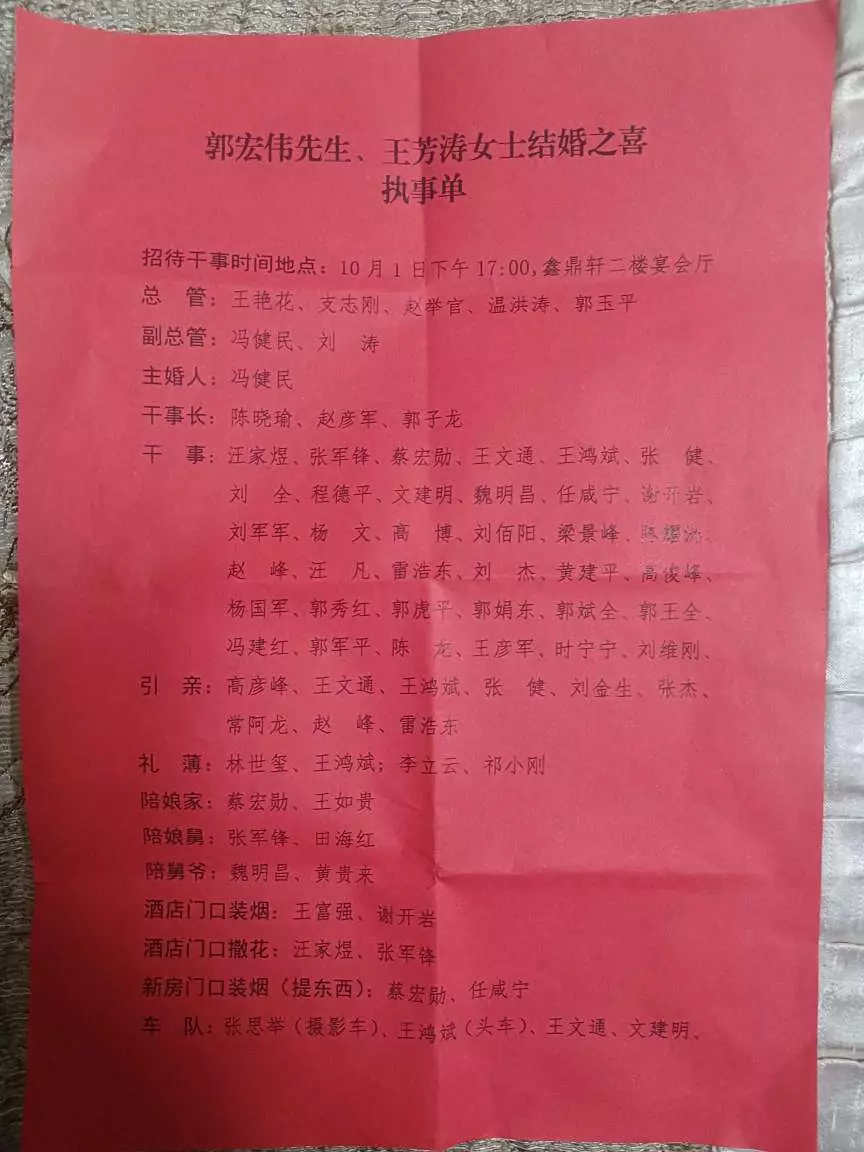 郭宏伟先生、王芳涛女士结婚之喜
执事单
招待干事时间地点：10月1日下午17:00,鑫鼎轩二楼宴会厅
总　管：王艳花、支志刚、赵举官、温洪涛、郭玉平
副总管：冯健民、刘　涛
主婚人：冯健民
干事长：陈晓瑜、赵彦军、郭子龙
干　事：汪家煜、张军锋、蔡宏勋、王文通、王鸿斌、张　健、
刘　全、程德平、文建明、魏明昌、任咸宁、谢开岩、
刘军军、杨　文、高　博、刘佰阳、梁景峰、陈耀
赵　峰、汪　凡、雷浩东、刘　杰、黄建平、高俊峰、
杨国军、郭秀红、郭虎平、郭娟东、郭斌全、郭王全、
冯建红、郭军平、陈　龙、王彦军、时宁宁、刘维刚、
引　亲：高彦峰、王文通、王鸿斌、张　健、刘金生、张杰、
常阿龙、赵　峰、雷浩东
礼　薄：林世玺、王鸿斌；李立云、祁小刚
陪娘家：蔡宏勋、王如贵
陪娘舅：张军锋、田海红
陪舅爷：魏明昌、黄贵来
酒店门口装烟：王富强、谢开岩
酒店门口撒花：汪家煜、张军锋
新房门口装烟（提东西）：蔡宏勋、任咸宁
车　队：张思举（摄影车）、王鸿斌（头车）、王文通、文建明、